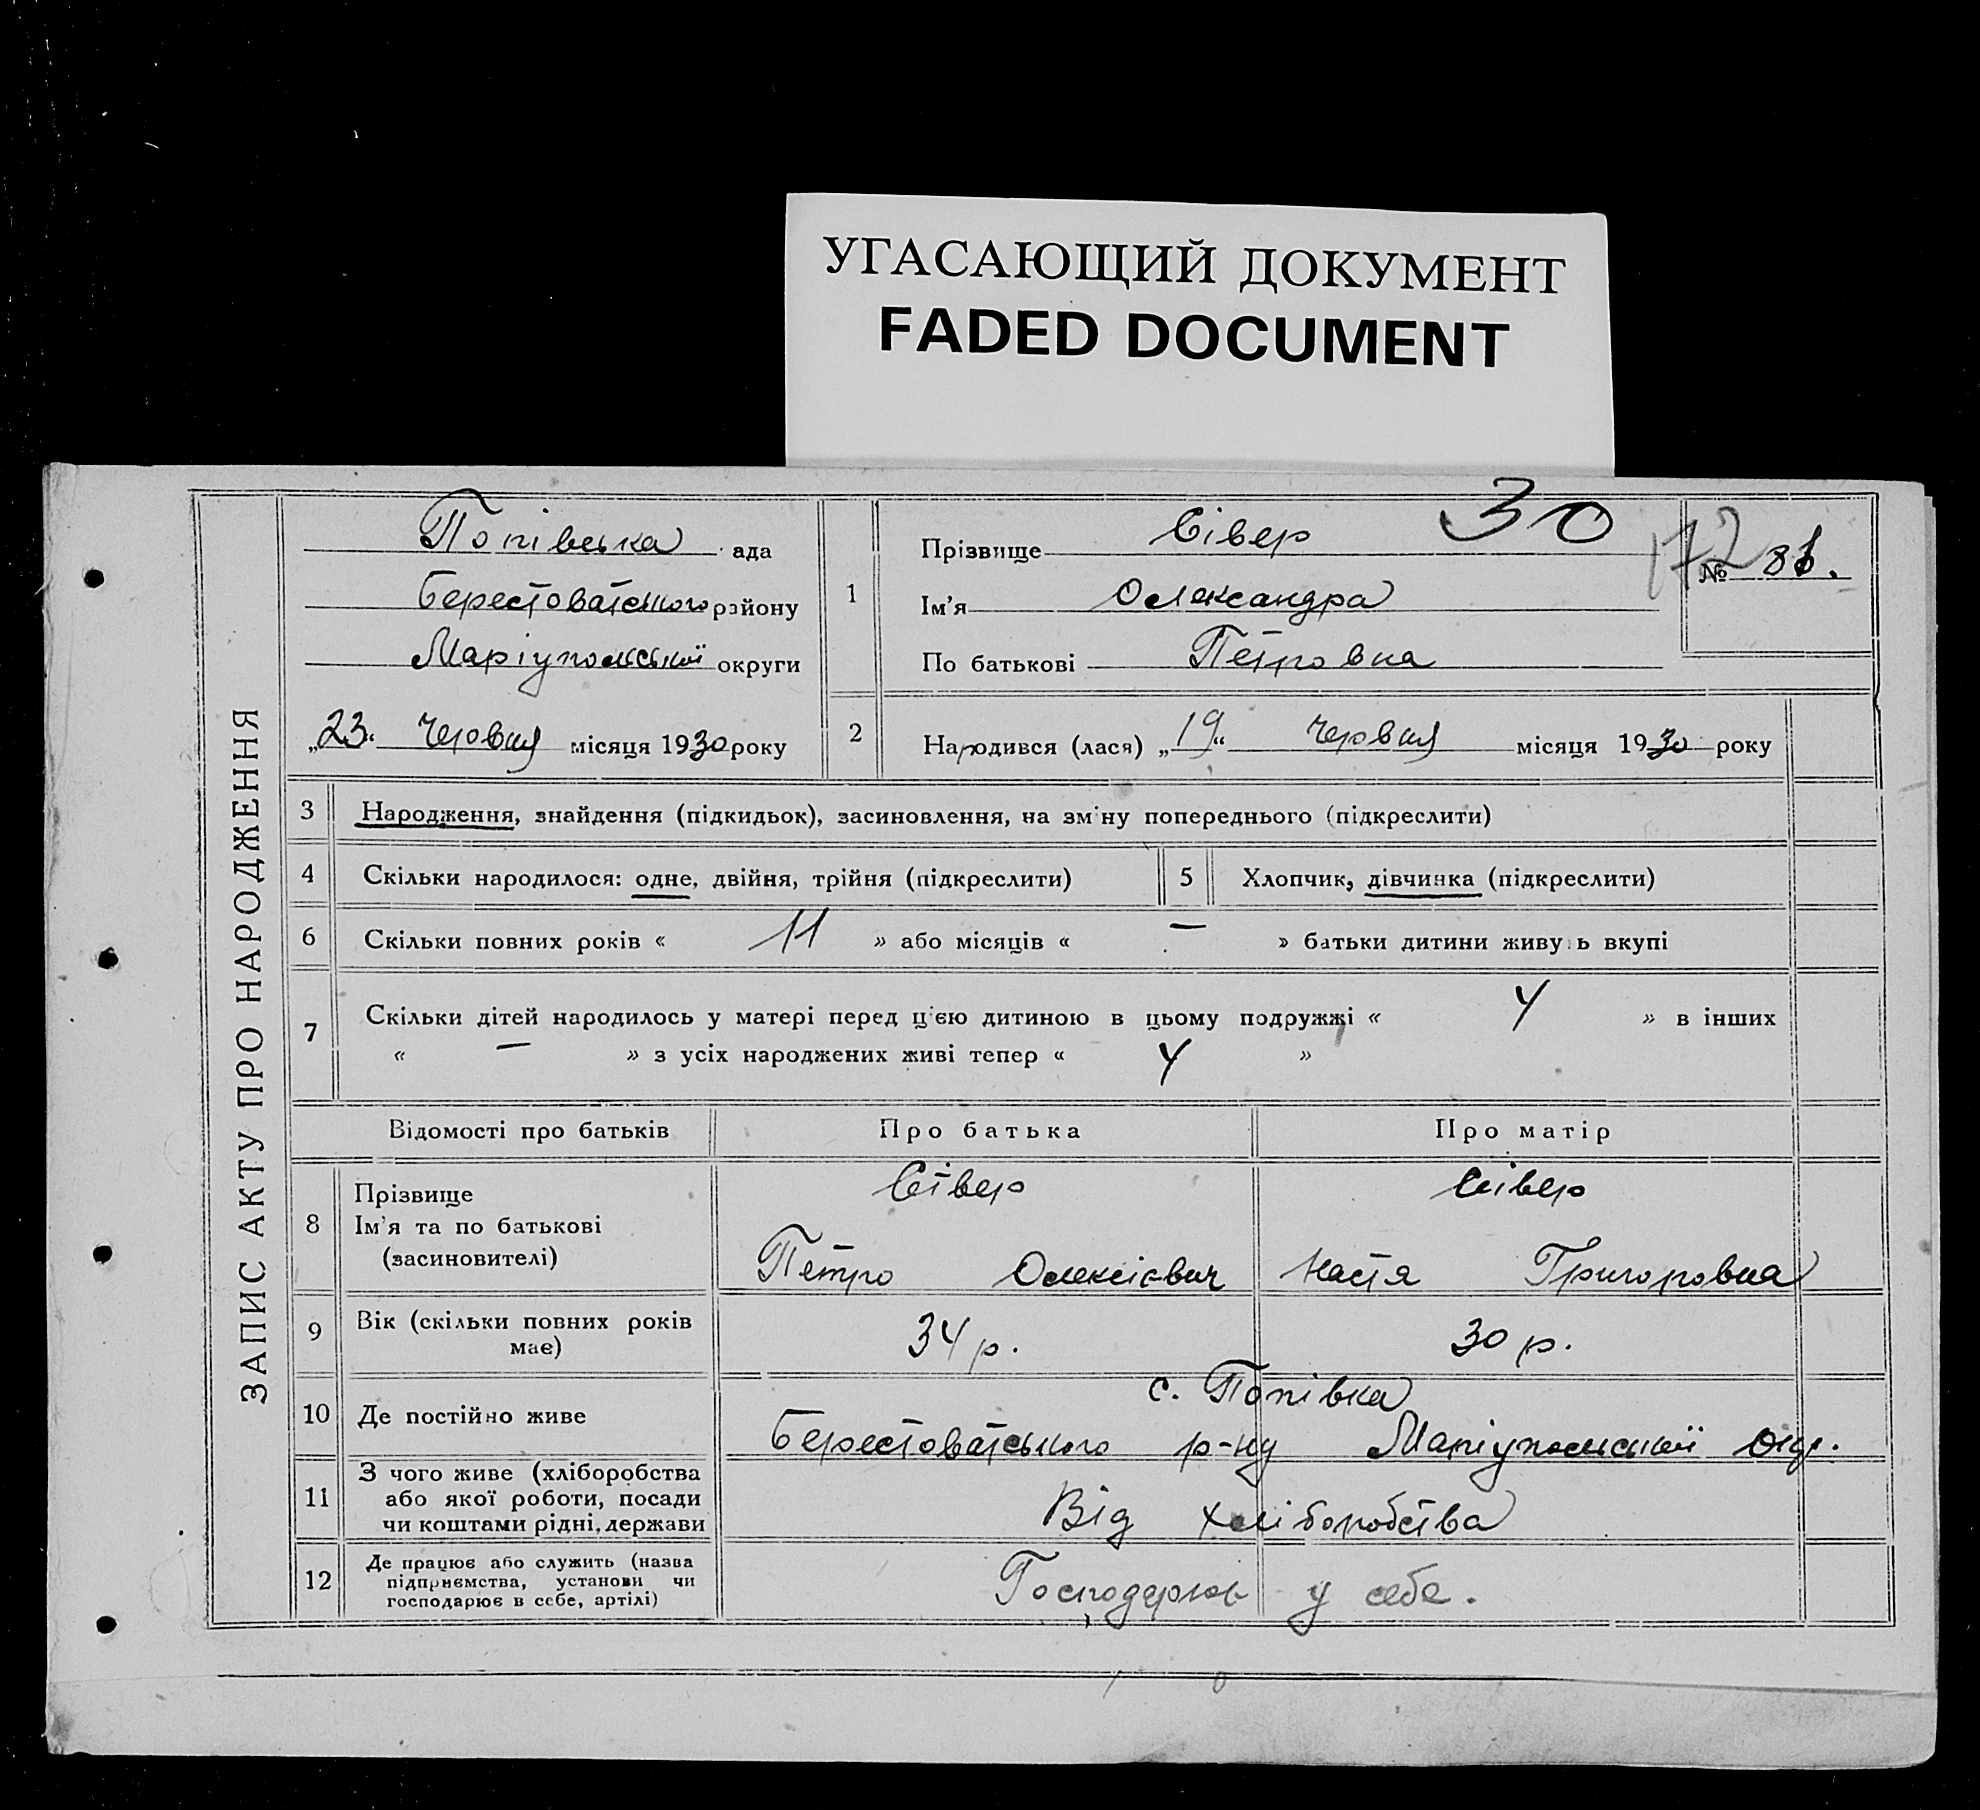 УГАСАЮЩИЙ ДОКУМЕНТ
FADED DOCUMENT
ЗАПИС АКТУ ПРО НАРОДЖЕННЯ
Попівська ада
Берестоватського району
Маріупольської округи
„23“ Червня місяця 1930 року
30
1 Прізвище Сівер
Ім'я Олександра
По батькові Петровна
172
№ 81.
2 Народився (лася) „19“ Червня місяця 1930 року
3 Народження, знайдення (підкидьок), засиновлення, на зміну попереднього (підкреслити)
4 Скільки народилося: одне, двійня, трійня (підкреслити) 5 Хлопчик, дівчинка (підкреслити)
6 Скільки повних років « 11 » або місяців « — » батьки дитини живуть вкупі
7 Скільки дітей народилось у матері перед цією дитиною в цьому подружжі « 4 » в інших
« — » з усіх народжених живі тепер « 4 »
Відомості про батьків Про батька Про матір
8 Прізвище Сівер Сівер
Ім'я та по батькові
(засиновителі) Петро Олексієвич Настя Григоровна
9 Вік (скільки повних років має) 34 р. 30 р.
с. Попівка
10 Де постійно живе Берестоватського р-ну Маріупольської окр.
11 З чого живе (хліборобства
або якої роботи, посади Від хліборобства
чи коштами рідні, держави
12 Де працює або служить (назва
підприємства, установи чи Господарює у себе.
господарює в себе, артілі)